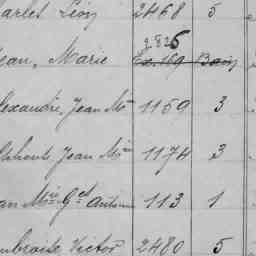 arles Léon 2468 5
2825
ean, Marie Ex. 169 Bain
lexandre, Jean Mie 1159 3
lphonse Jean Mie 1174 3
an Mie Gel Antoine 113 1
mbroise Victor 2480 5